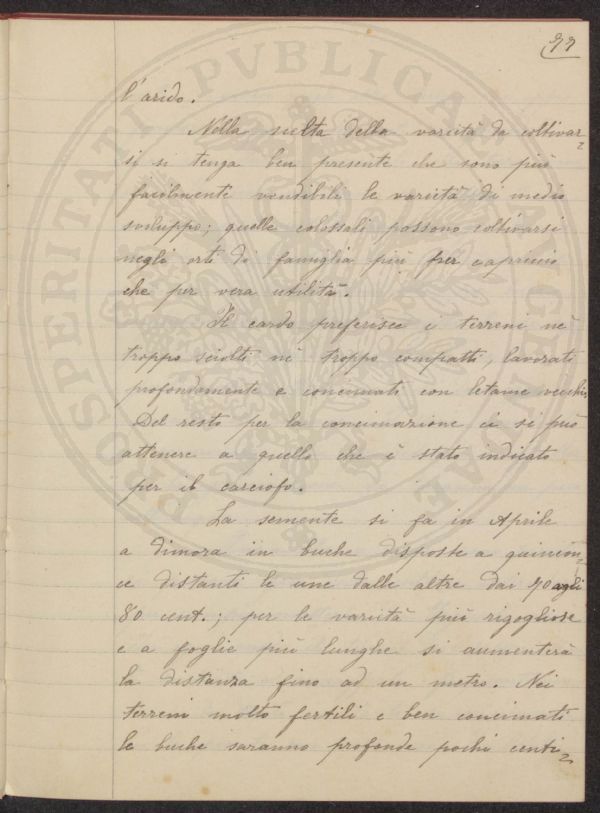 77
l'arido.
Nella scelta della varietà da coltivar-
si si tenga ben presente che sono più
facilmente vendibili le varietà di medio
sviluppo; quelle colossali possono coltivarsi
negli orti di famiglia più per capriccio
che per vera utilità.
Il cardo preferisce i terreni nè
troppo sciolti nè troppo compatti, lavorati
profondamente e concimati con letame vecchio.
Del resto per la concimazione ci si può
attenere a quello che è stato indicato
per il carciofo.
La semente si fa in Aprile
a dimora in buche disposte a quincon-
ce distanti le une dalle altre dai 70 agli
80 cent.; per le varietà più rigogliose
e a foglie più lunghe si aumenterà
la distanza fino ad un metro. Nei
terreni molto fertili e ben concimati
le buche saranno profonde pochi centi-
PROSPERITATI PVBLICAE AVGENDAE